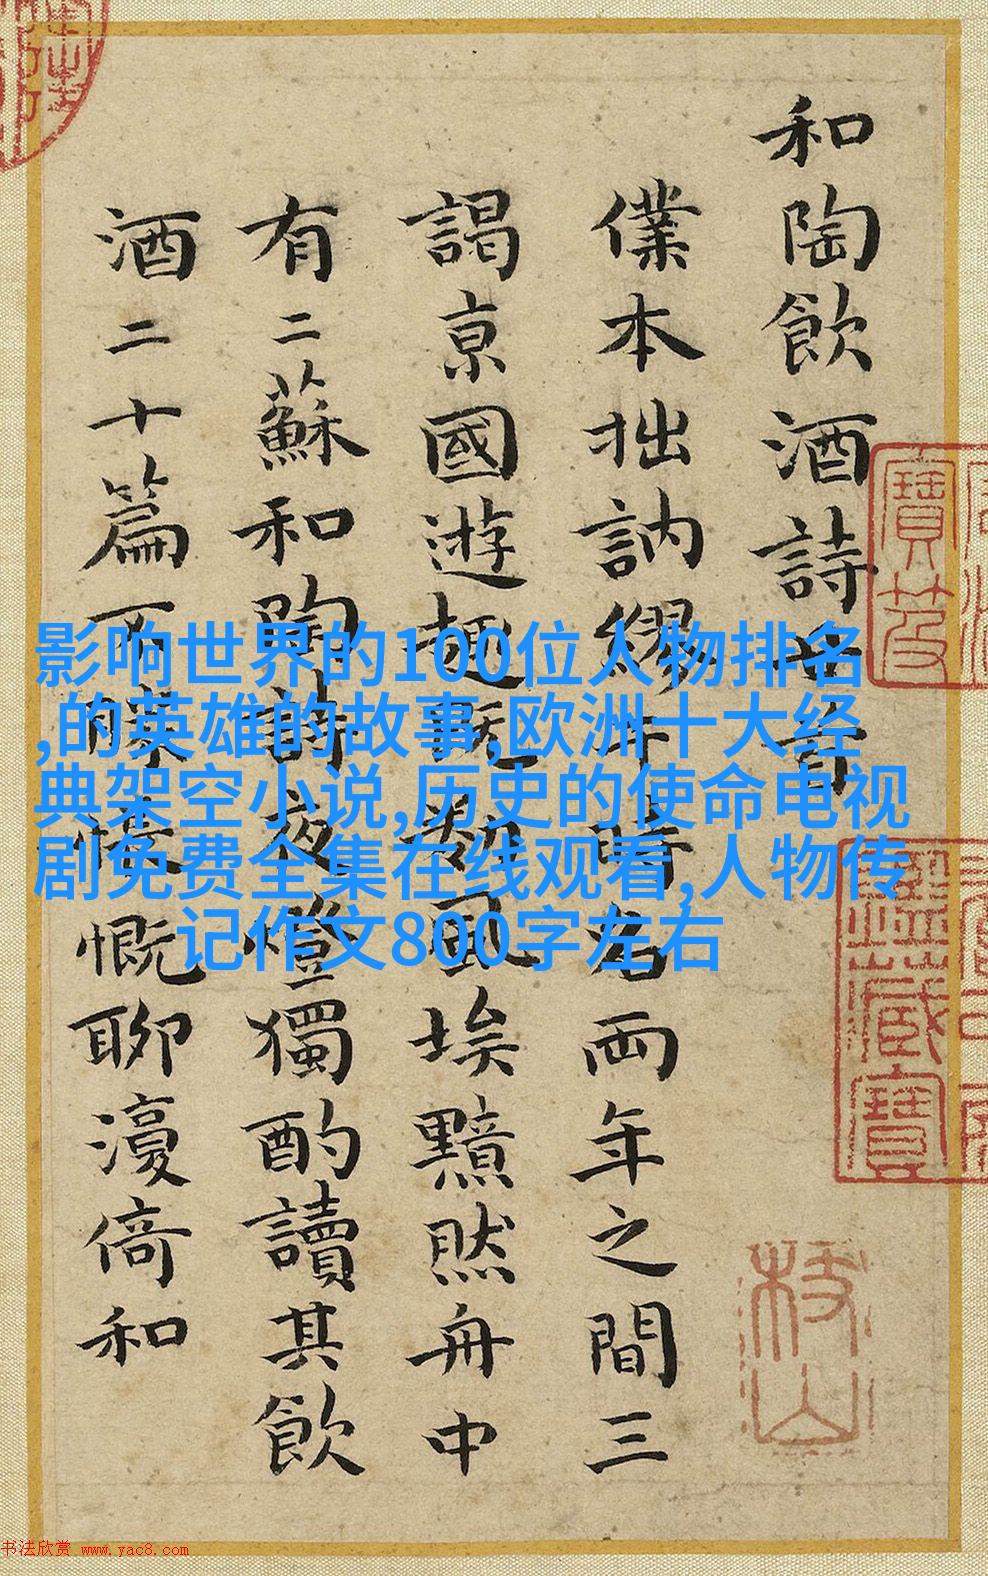 和陶飲酒詩
僕本拙訥繆時名兩年之間三
謁亰國遊趣既風埃黯然舟中
有二蘇和陶詩夜燈獨酌讀其飲
酒二十篇不勝慨聊倚和
影响世界的100位人物排名
,的英雄的故事,欧洲十大经
典架空小说,历史的使命电视
剧免费全集在线观看,人物传
记作文800字左右
寶笈
藏寶
枝山
书法欣赏 www.yac8.com